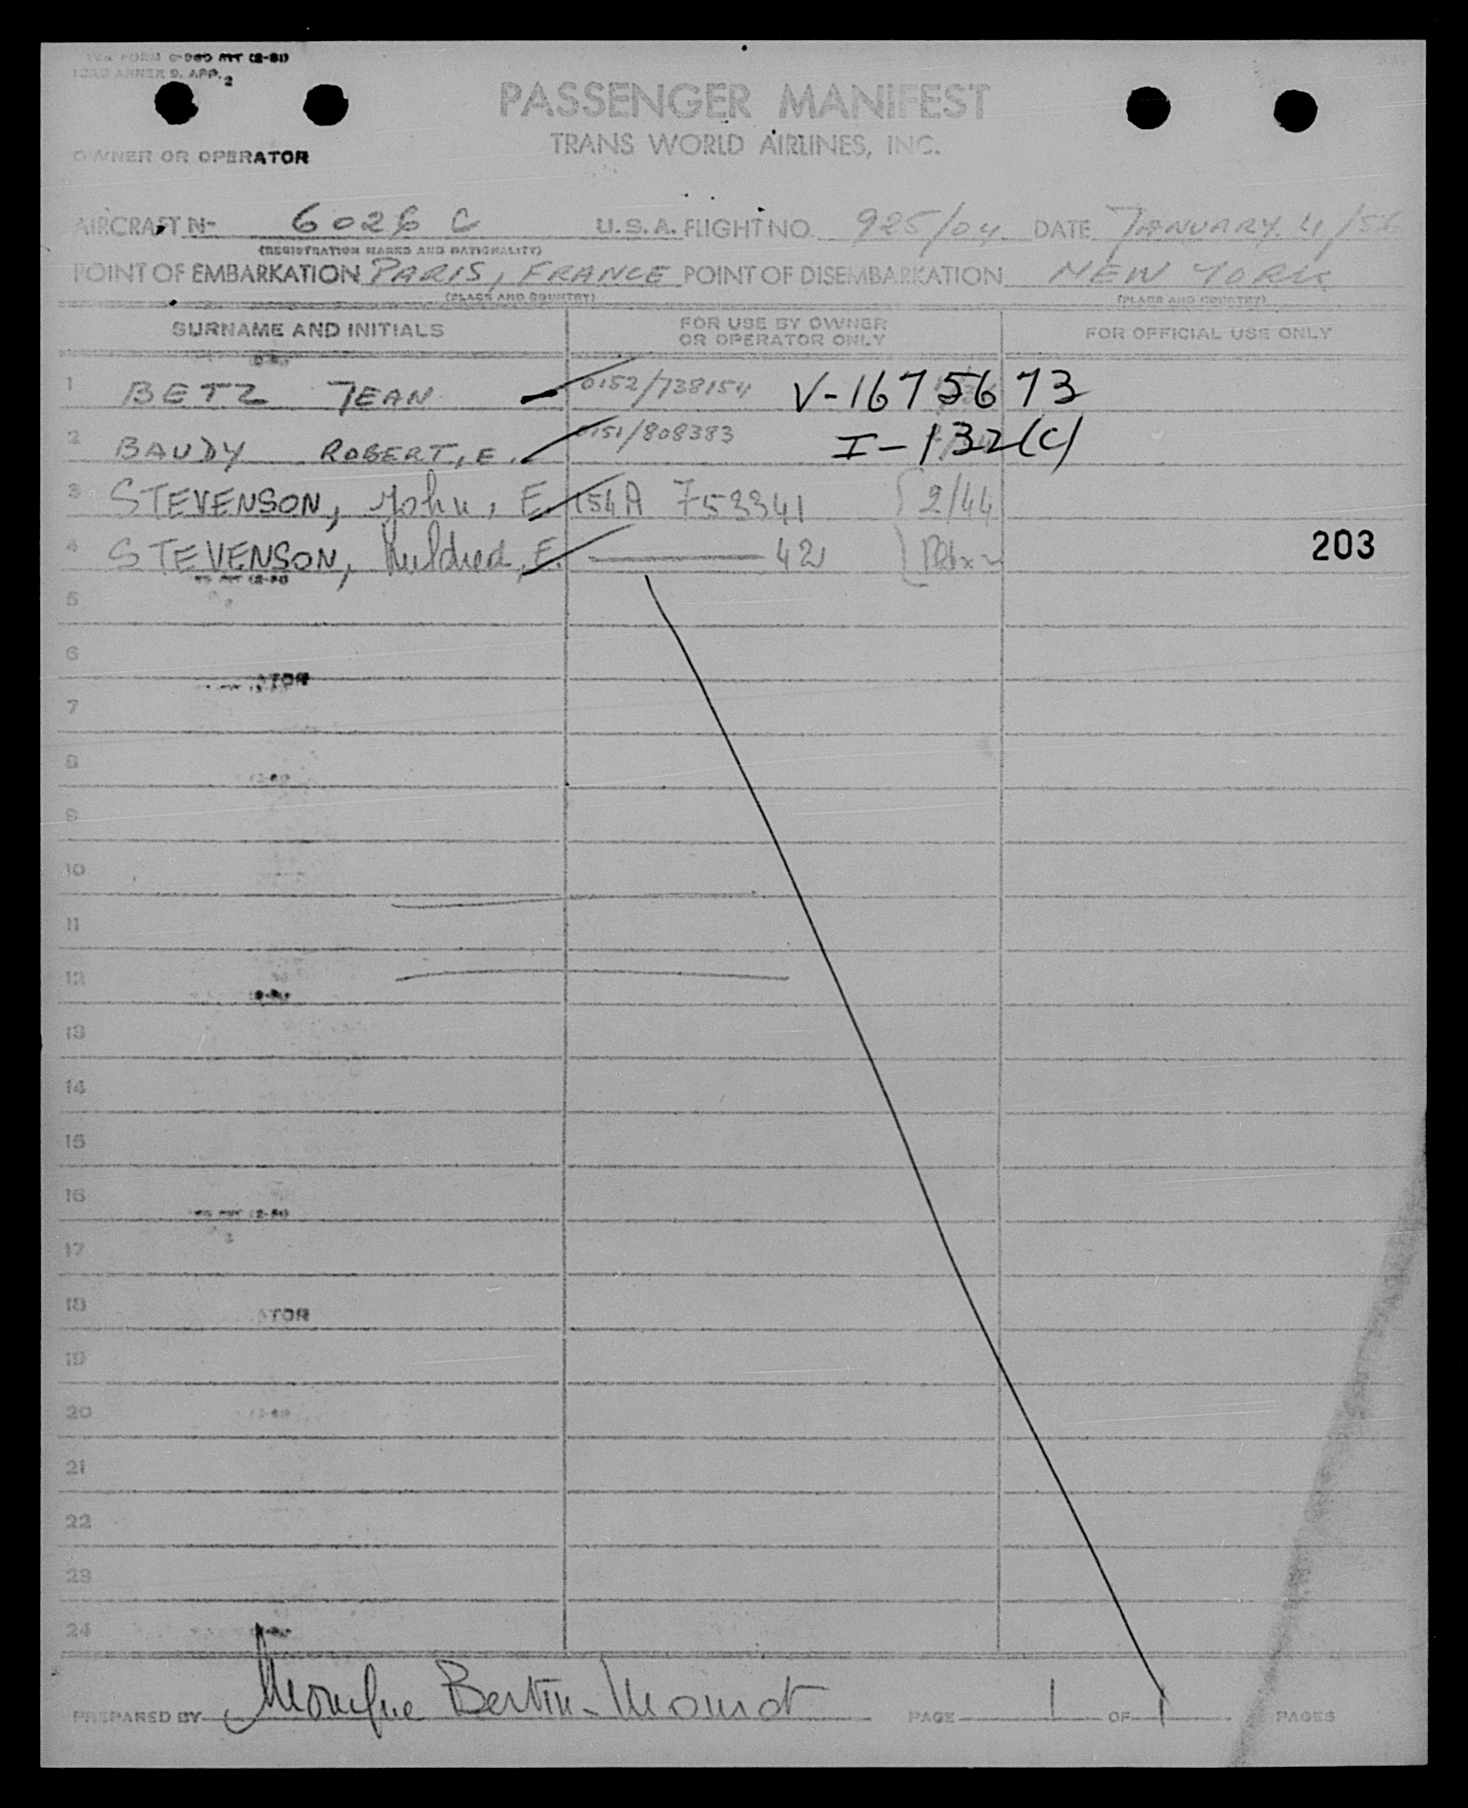 ICAO ANNEX 9, APP. 2
PASSENGER MANIFEST
TRANS WORLD AIRLINES, INC.
OWNER OR OPERATOR
AIRCRAFT No 6026 C U.S.A. FLIGHT NO. 925/04 DATE JANUARY 4/56
(REGISTRATION MARKS AND NATIONALITY)
POINT OF EMBARKATION PARIS, FRANCE POINT OF DISEMBARKATION NEW YORK
(PLACE AND COUNTRY) (PLACE AND COUNTRY)
SURNAME AND INITIALS FOR USE BY OWNER OR OPERATOR ONLY FOR OFFICIAL USE ONLY
1 BETZ JEAN 0152/738154 V-1675673
2 BAUDY ROBERT, E. 0151/808383 I-132(C)
3 STEVENSON, John, E. 154A 753341 2/44
4 STEVENSON, Mildred, E. 42 203
5
6
7
8
9
10
11
12
13
14
15
16
17
18
19
20
21
22
23
24
PREPARED BY Monique Bertin-Mourot PAGE 1 OF 1 PAGES